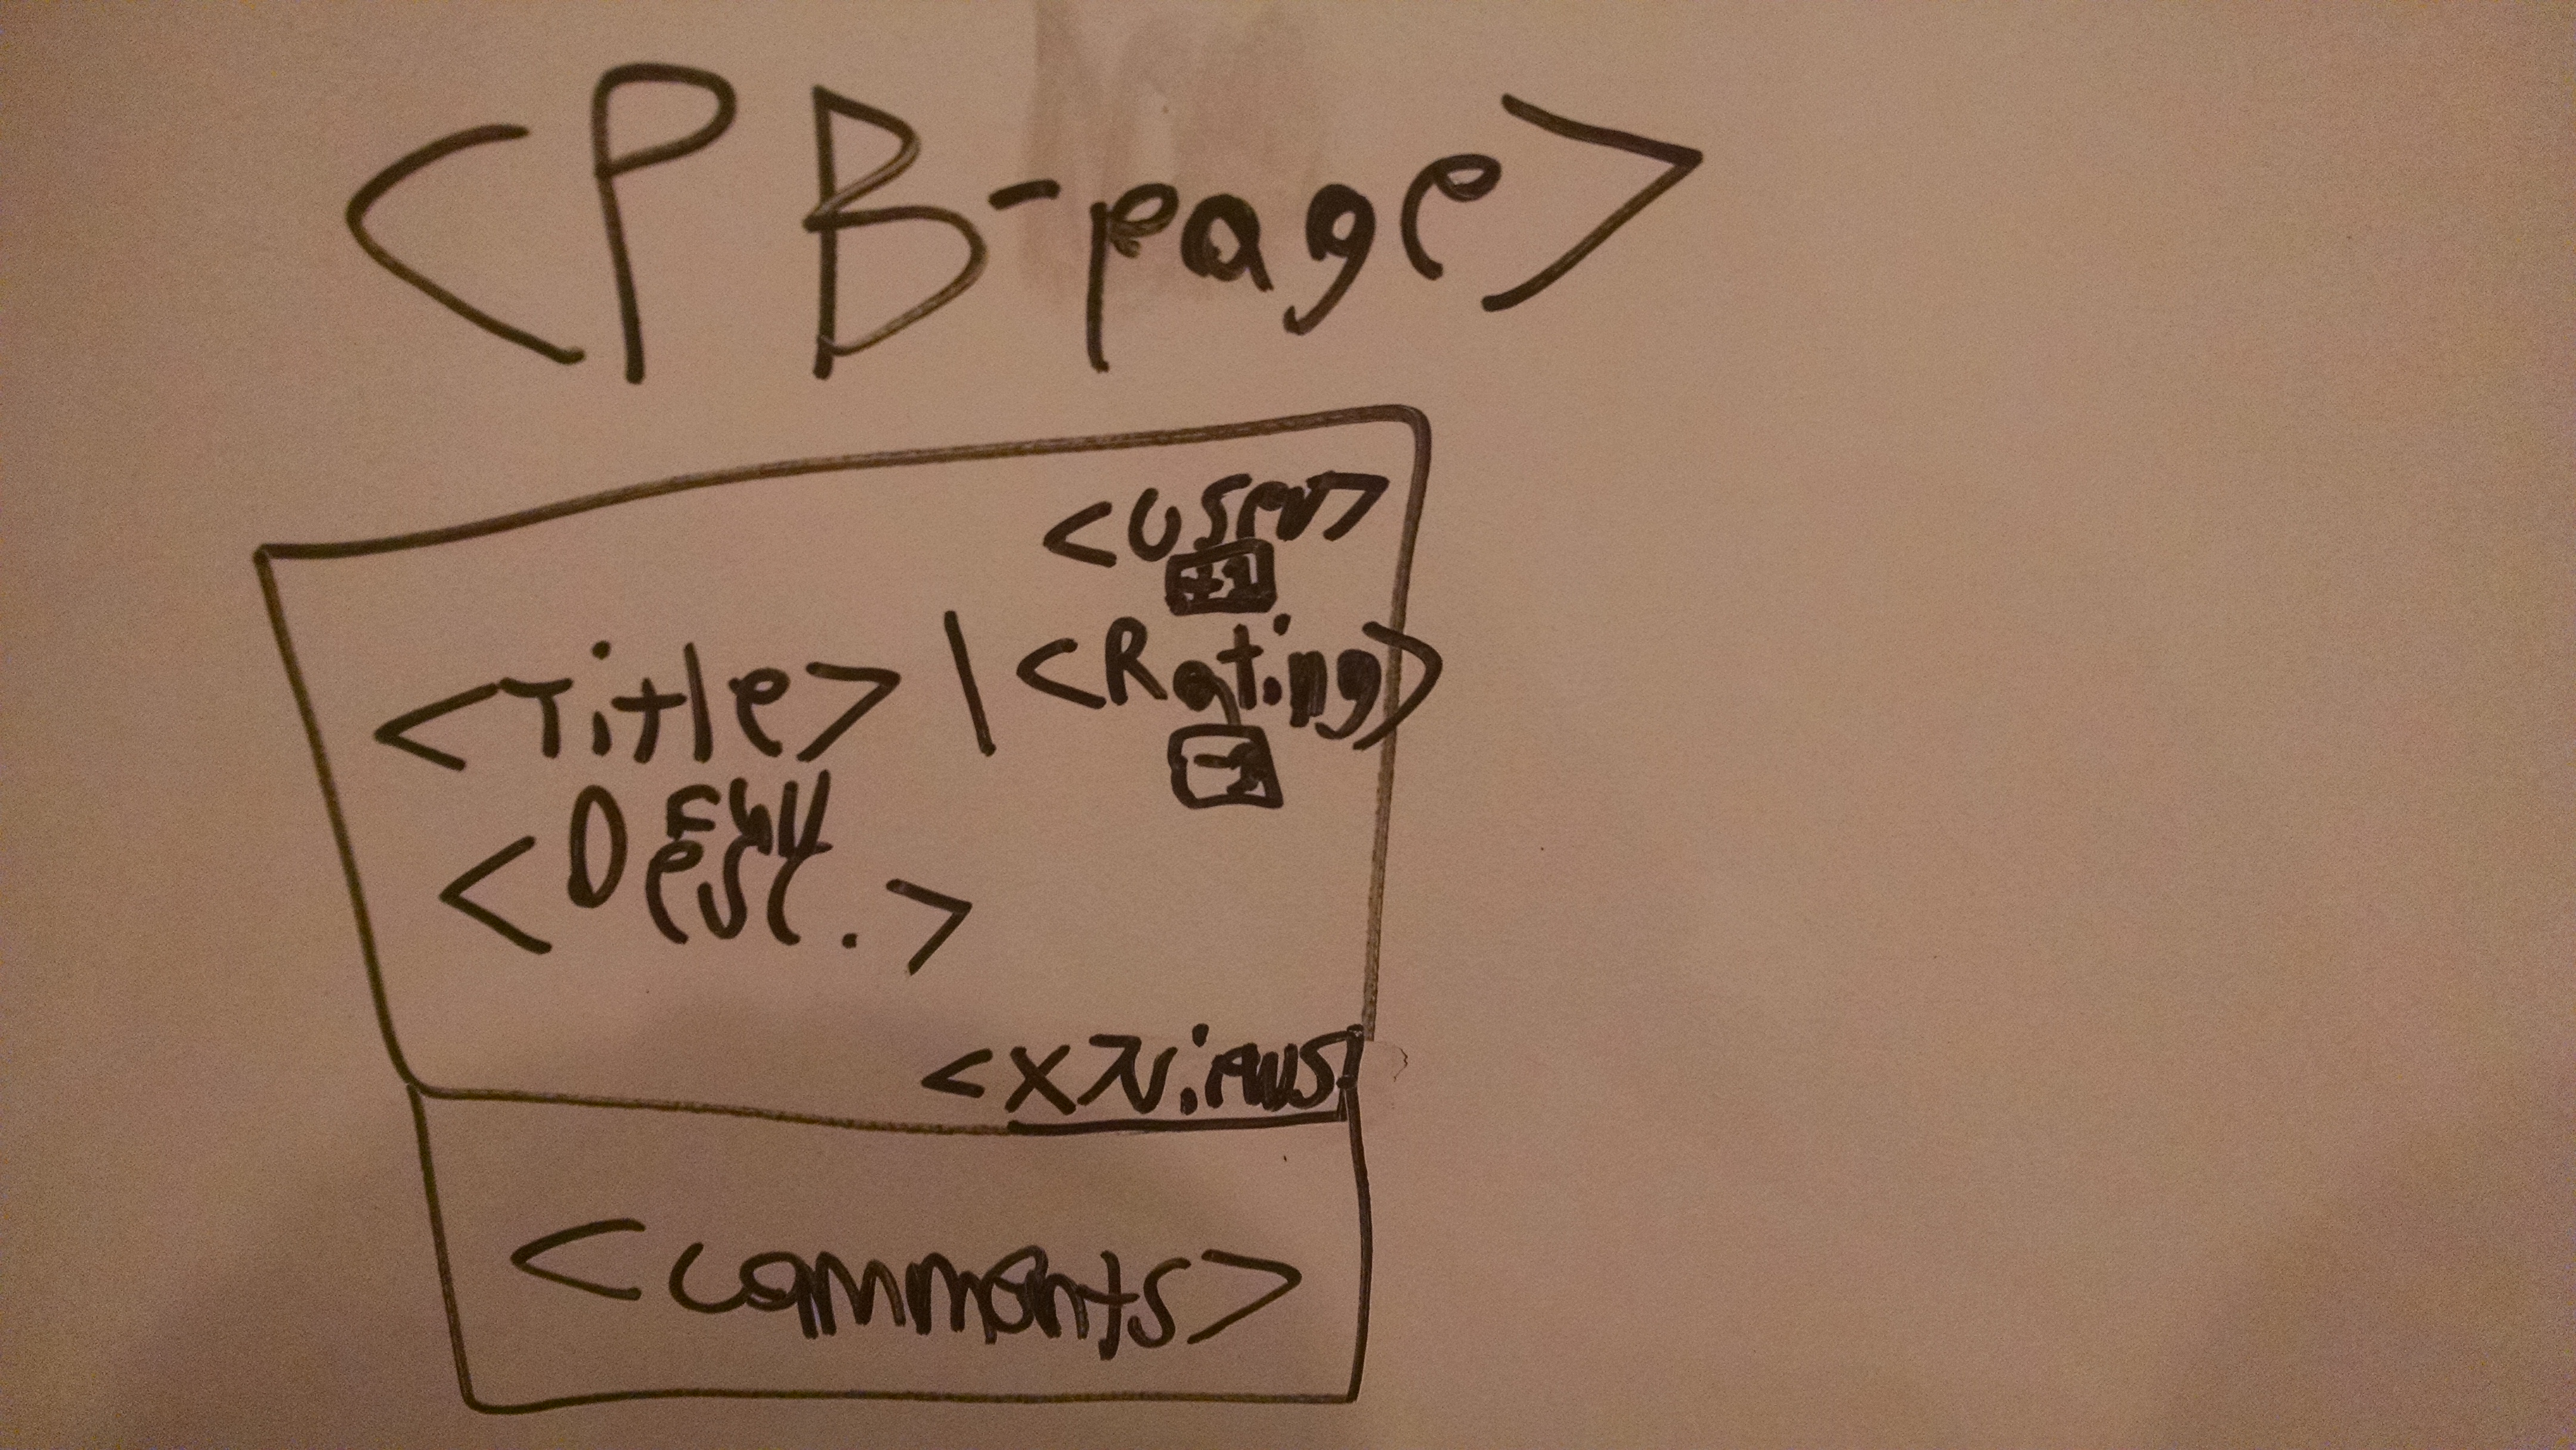 <PB-page>
<User>
+1
<Title> | <Rating>
-1
Full
<Desc.>
<X> Views
<comments>